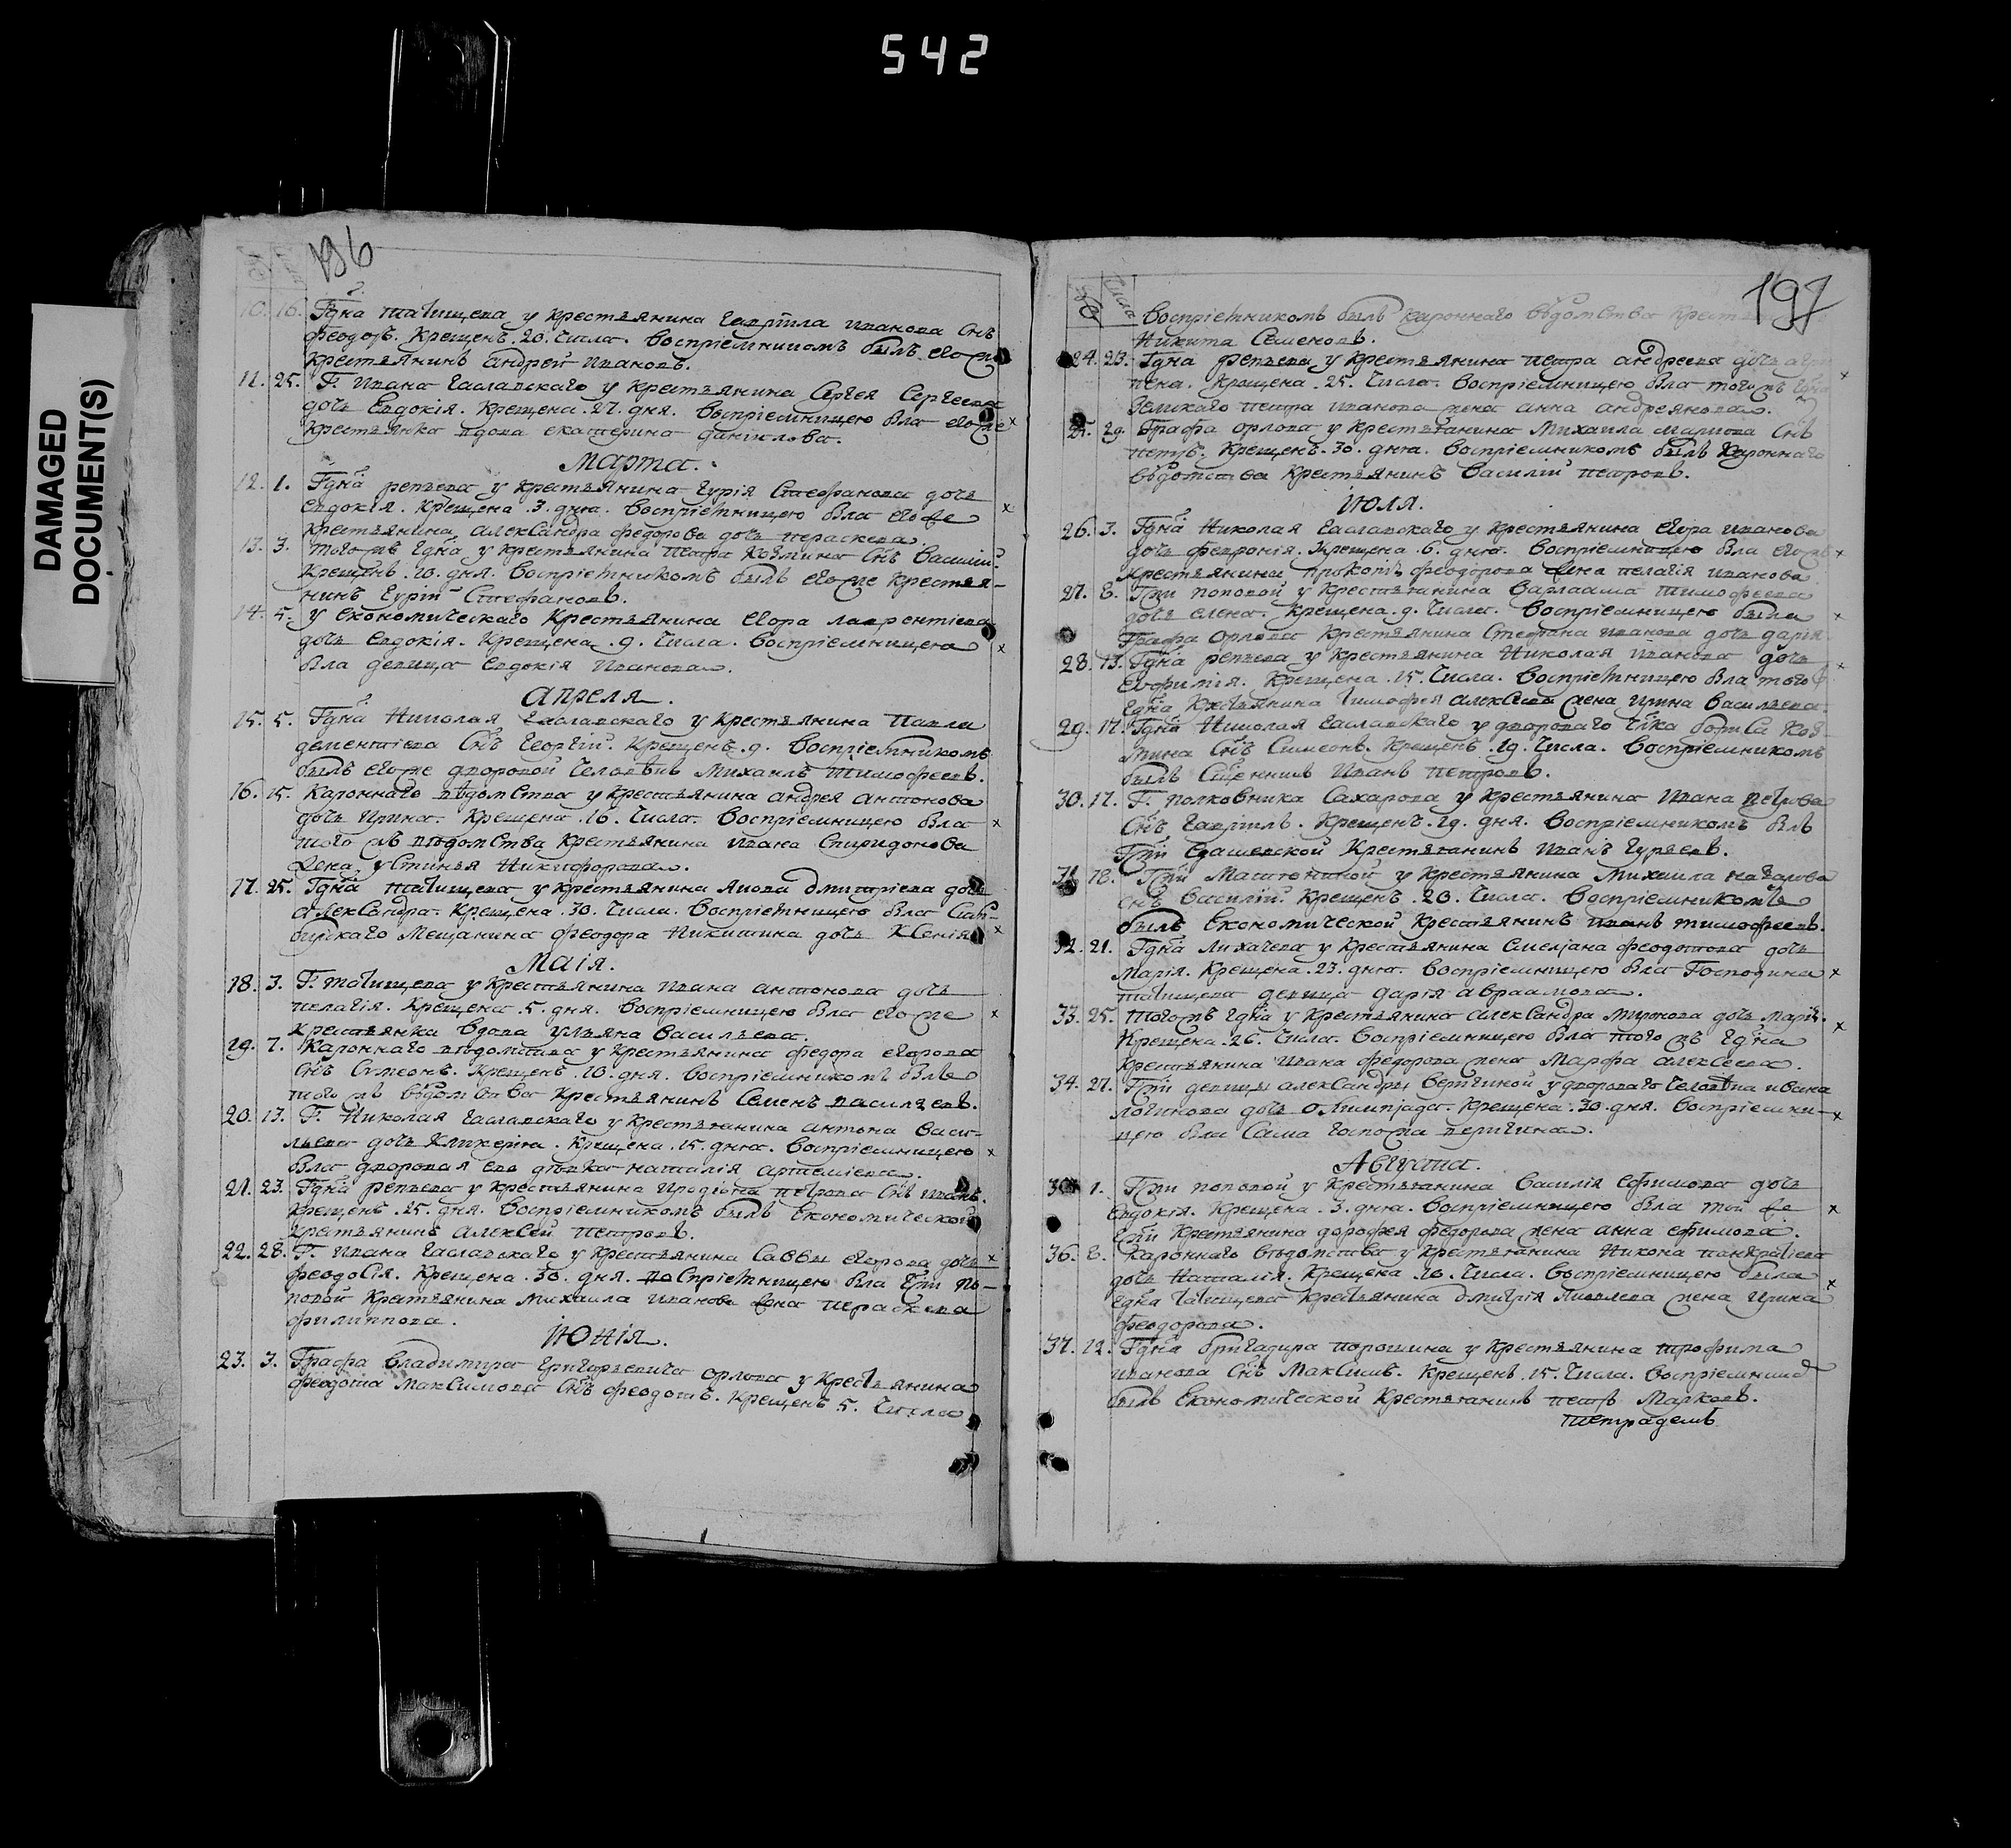 542
DAMAGED
DOCUMENT(S)
196
10. 16. Гдна татищева у крестьянина гаврiила иванова снъ
феодоръ. Крещенъ. 20. числа. Воспрiемникомъ былъ егоже
крестьянинъ андрей ивановъ.
11. 25. Г. Ивана гаславскаго у крестьянина Сергея Сергеева
дочь Евдокiя. Крещена. 27. дня. Воспрiемницею вла егоже
крестьянка вдова екатерина данiилова.
Марта.
12. 1. Гдна репьева у крестьянина гурiя Стефанова дочь
евдокiя. Крещена. 3. дня. Воспрiемницею вла егоже
крестьянина александра федорова дочь параскева.
13. 3. тогожъ гдна у крестьянина петра козмина снъ Василiй.
Крещенъ. 10. дня. Воспрiемникомъ былъ егоже крестья-
нинъ гурiй Стефановъ.
14. 5. у економическаго крестьянина егора лаврентiева
дочь Евдокiя. Крещена. 9. числа. Воспрiемницею
вла девица евдокiя Иванова.
апреля.
15. 5. Гдна Николая гаславскаго у крестьянина павла
дементiева снъ георгiй. Крещенъ. 9. Воспрiемникомъ
былъ егоже дворовой человѣкъ Михаилъ тимофеевъ.
16. 15. Кароннаго вѣдомства у крестьянина андрея антонова
дочь Ирина. Крещена. 16. числа. Воспрiемницею вла
того жъ вѣдомства крестьянина ивана Спиридонова
жена устинья Никифорова.
17. 25. Гдна татищева у крестьянина якова дмитрiева дочь
александра. Крещена. 30. числа. Воспрiемницею вла Син-
бирскаго мещанина феодора Никитина дочь Ксенiя
Маiя.
18. 3. Г. татищева у крестьянина ивана антонова дочь
пелагiя. Крещена. 5. дня. Воспрiемницею вла егоже
крестьянка вдова ульяна Васильева.
19. 7. Кароннаго вѣдомства у крестьянина федора егорова
снъ Сумеонъ. Крещенъ. 10. дня. Воспрiемникомъ былъ
того жъ вѣдомства крестьянинъ Семенъ васильевъ.
20. 13. Г. Николая гаславскаго у крестьянина антона Васи-
льева дочь Гликерiя. Крещена. 15. дня. Воспрiемницею
вла дворовая ево дѣвка наталiя артемiева.
21. 23. Гдна репьева у крестьянина Иродiона петрова снъ иванъ.
Крещенъ. 25. дня. Воспрiемникомъ былъ економической
крестьянинъ алексей петровъ.
22. 28. Г. Ивана гаславскаго у крестьянина Саввы егорова дочь
феодосiя. Крещена. 30. дня. воспрiемницею вла гжи по-
повой крестьянина михаила иванова жена параскева
филиппова.
Iюнiя.
23. 3. Графа владимира григорьевича орлова у крестьянина
феодота максимова снъ феодотъ. Крещенъ 5. числа
197
Числа
Воспрiемникомъ былъ кароннаго вѣдомства
Никита Семеновъ.
24. 23. Гдна репьева у крестьянина петра андреева дочь
Крещена. 25. числа. Воспрiемницею вла тогожъ гдна
петра иванова жена анна андреянова.
25. 29. Графа орлова у крестьянина Михаила маркова снъ
петръ. Крещенъ. 30. дня. Воспрiемникомъ былъ кароннаго
вѣдомства крестьянинъ Василiй петровъ.
Iюля.
26. 3. Гдна Николая гаславскаго у крестьянина егора иванова
дочь февронiя. Крещена. 6. дня. Воспрiемницею вла егожъ
крестьянина прокопiя феодорова жена пелагiя иванова.
27. 6. Гжи поповой у крестьянина варлаама тимофеева
дочь елена. Крещена. 9. числа. Воспрiемницею была
графа орлова крестьянина Стефана иванова дочь дарiя.
28. 13. Гдна репьева у крестьянина Николая иванова дочь
евфимiя. Крещена. 15. числа. Воспрiемницею вла того
гдна крестьянина тимофея алексеева жена ирина Васильева.
29. 17. Гдна Николая гаславскаго у двороваго члвка бориса Коз-
мина снъ Симеонъ. Крещенъ. 19. числа. Воспрiемникомъ
былъ Сщенникъ Иванъ петровъ.
30. 17. Г. полковника Сахарова у крестьянина ивана петрова
снъ гаврiилъ. Крещенъ. 19. дня. Воспрiемникомъ влъ
Гжи крестьянинъ иванъ гурьевъ.
31. 18. Гжи у крестьянина михаила
снъ василiй. Крещенъ. 20. числа. Воспрiемникомъ
былъ економической крестьянинъ иванъ тимофеевъ.
32. 21. Гдна лихачева у крестьянина емельяна феодотова дочь
марiя. Крещена. 23. дня. Воспрiемницею вла господина
татищева девица дарiя авраамова.
33. 25. тогожъ гдна у крестьянина александра миронова дочь марiя.
Крещена. 26. числа. Воспрiемницею вла того жъ гдна
крестьянина ивана федорова жена Марфа алексеева.
34. 27. Гжи девицы александры веригиной у двороваго человѣка ивана
логинова дочь олимпiада. Крещена. 30. дня. Воспрiемни-
цею вла сама госпожа веригина.
Августа.
35. 1. Гжи поповой у крестьянина василiя ефимова дочь
евдокiя. Крещена. 3. дня. Воспрiемницею вла той же
гжи крестьянина дорофея федорова жена анна ефимова.
36. 6. Кароннаго вѣдомства у крестьянина никона панкратiева
дочь наталiя. Крещена. 10. числа. Воспрiемницею была
гдна татищева крестьянина дмитрiя яковлева жена ирина
феодорова.
37. 12. Гдна бригадира порошина у крестьянина трофима
иванова снъ Максимъ. Крещенъ. 15. числа. Воспрiемник
былъ економической крестьянинъ петръ Марковъ.